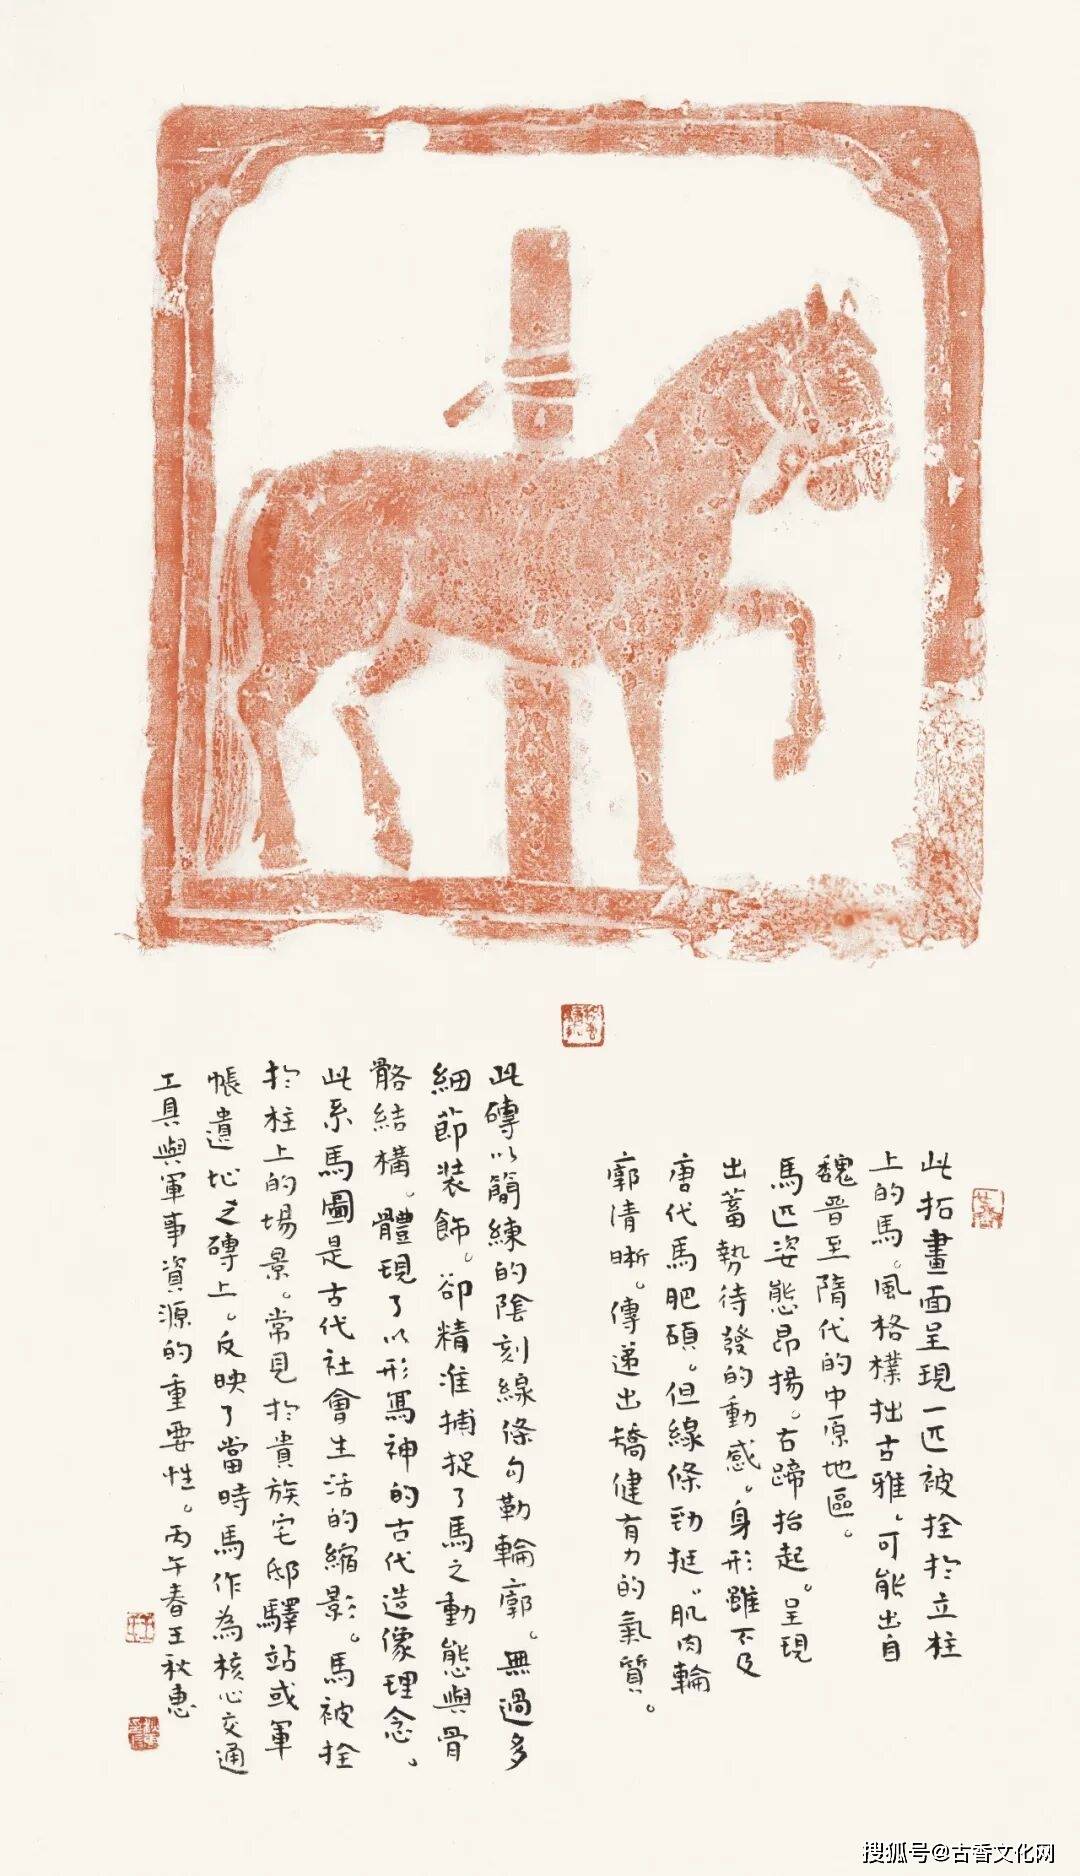 此拓畫面呈現一匹被拴於立柱
上的馬。風格樸拙古雅，可能出自
魏晉至隋代的中原地區。
馬匹姿態昂揚。右蹄抬起。呈現
出蓄勢待發的動感。身形雖不及
唐代馬肥碩。但線條勁挺。肌肉輪
廓清晰。傳遞出矯健有力的氣質。
此磚以簡練的陰刻線條勾勒輪廓。無過多
細節裝飾。卻精准捕捉了馬之動態與骨
骼結構。體現了以形寫神的古代造像理念。
此系馬圖是古代社會生活的縮影。馬被拴
於柱上的場景。常見於貴族宅邸驛站或軍
帳遺址之磚上。反映了當時馬作為核心交通
工具與軍事資源的重要性。丙午春王秋惠
搜狐号@古香文化网